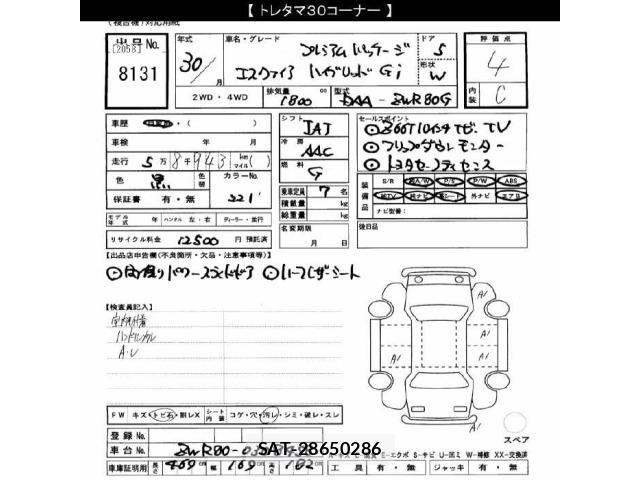 【 トレタマ30コーナー 】
(複合機)対応用紙
出品No. [2058] 8131
年式 30/ 月
車名・グレード プレミアム パッケージ
エスクァイア ハイブリッド Gi
ドア 5
形状 W
評価点 4
内装 C
2WD・4WD
排気量 1800 cc
型式 DAA-ZWR80G
車歴 自家用・( )
車検 年 月
走行 5万8千943 km マイル( )
色 黒
色替
カラーNo. 221
保証書 有・無
モデル年式 年 ハンドル 左・右 ディーラー・並行
リサイクル料金 12500円 預託済
シフト IAT
冷房 AAC
燃料 G
乗車定員 7名
積載量 kg
総重量 kg
名変期限 月 日
セールスポイント
フリップダウンモニター
トヨタセーフティセンス
装備品 S/R A/W P/S P/W ABS
純TV 純ナビ 革シート 外ナビ エアB
ナビ型番:
後日品
【出品店申告欄(不良箇所・欠品・注意事項等)】
両側パワースライドドア ハーフレザーシート
【検査員記入】
ハンドルスレ
A・U
A1
A1
A1
A1
A1
スペア
FW キズ・トビ石・割レX シート内装 コゲ・穴・汚レ・シミ・破レ・スレ
登録No.
車台No. ZWR80-03
SAT-28650286
E-エクボ S-サビ U-凹ミ W-補修 XX-交換済
車庫証明用 長さ 469cm 幅 169cm 高さ 182cm 工具 有・無 ジャッキ 有・無